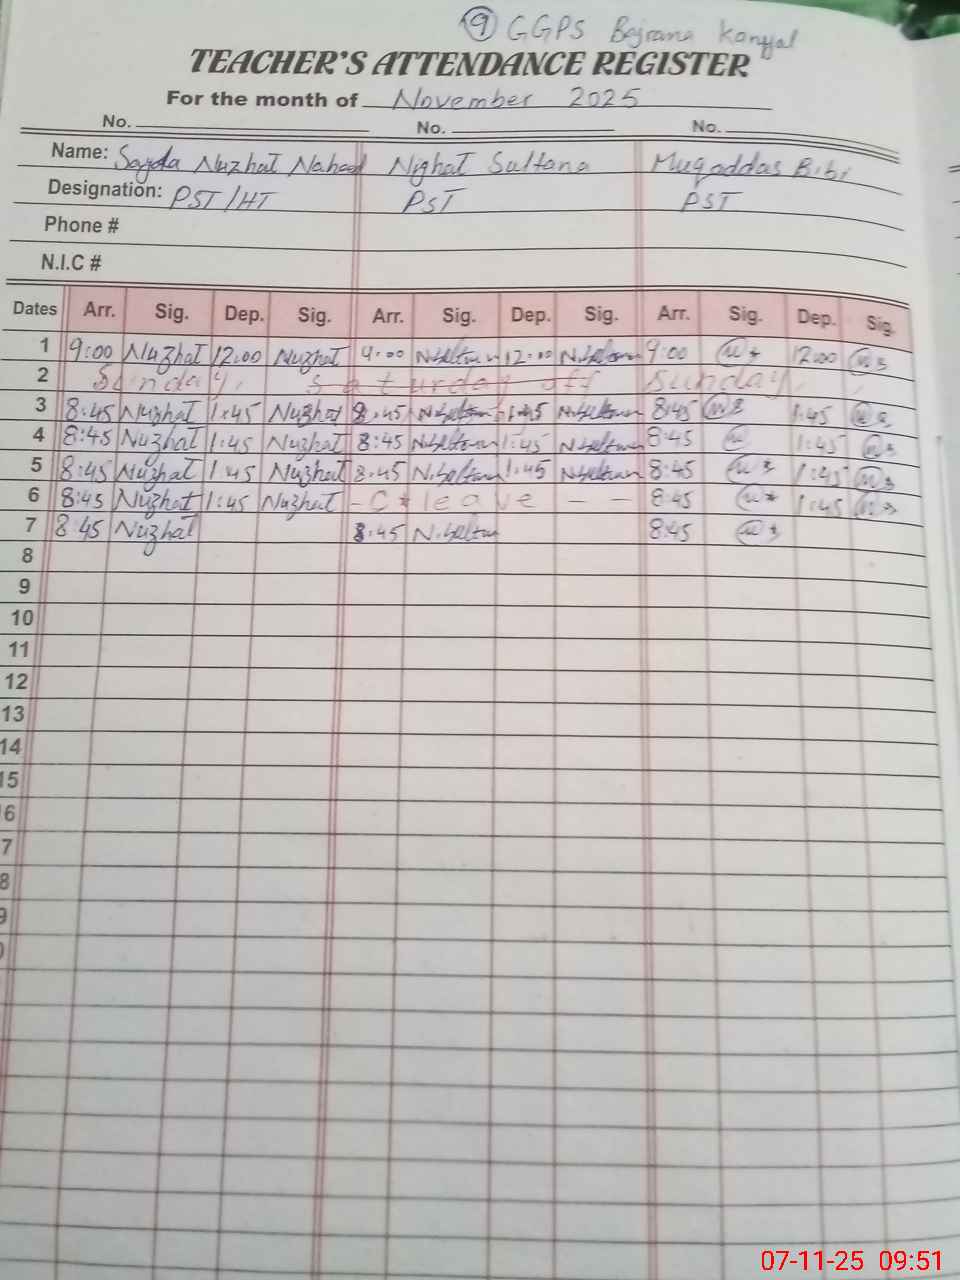 9 GGPS Bajrana Kanyal
TEACHER'S ATTENDANCE REGISTER
For the month of November 2025
No. No. No.
Name: Sayda Nuzhat Naheed Nighat Sultana Muqaddas Bibi
Designation: PST/HT PST PST
Phone #
N.I.C #
Dates Arr. Sig. Dep. Sig. Arr. Sig. Dep. Sig. Arr. Sig. Dep. Sig.
1 9:00 Nuzhat 12:00 Nuzhat 9:00 N.Sultana 12:00 N.Sultana 9:00 12:00
2 Sunday, Saturday off Sunday,
3 8:45 Nuzhat 1:45 Nuzhat 8:45 N.Sultana 1:45 N.Sultana 8:45 1:45
4 8:45 Nuzhat 1:45 Nuzhat 8:45 N.Sultana 1:45 N.Sultana 8:45 1:45
5 8:45 Nuzhat 1:45 Nuzhat 8:45 N.Sultana 1:45 N.Sultana 8:45 1:45
6 8:45 Nuzhat 1:45 Nuzhat - C * leave - - 8:45 1:45
7 8:45 Nuzhat 8:45 N.Sultana 8:45
8
9
10
11
12
13
14
15
6
7
8
9
0
07-11-25 09:51